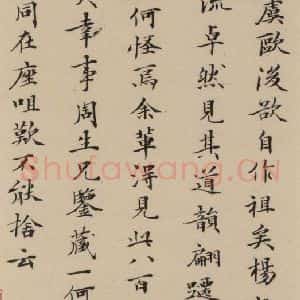 虞歐後欲自作祖矣楊
流卓然見其道韻翩躚
何怪焉余輩得見此八百
幸事周生兄鑒藏一何
同在座咀歎不能捨云
Shufawang.CN